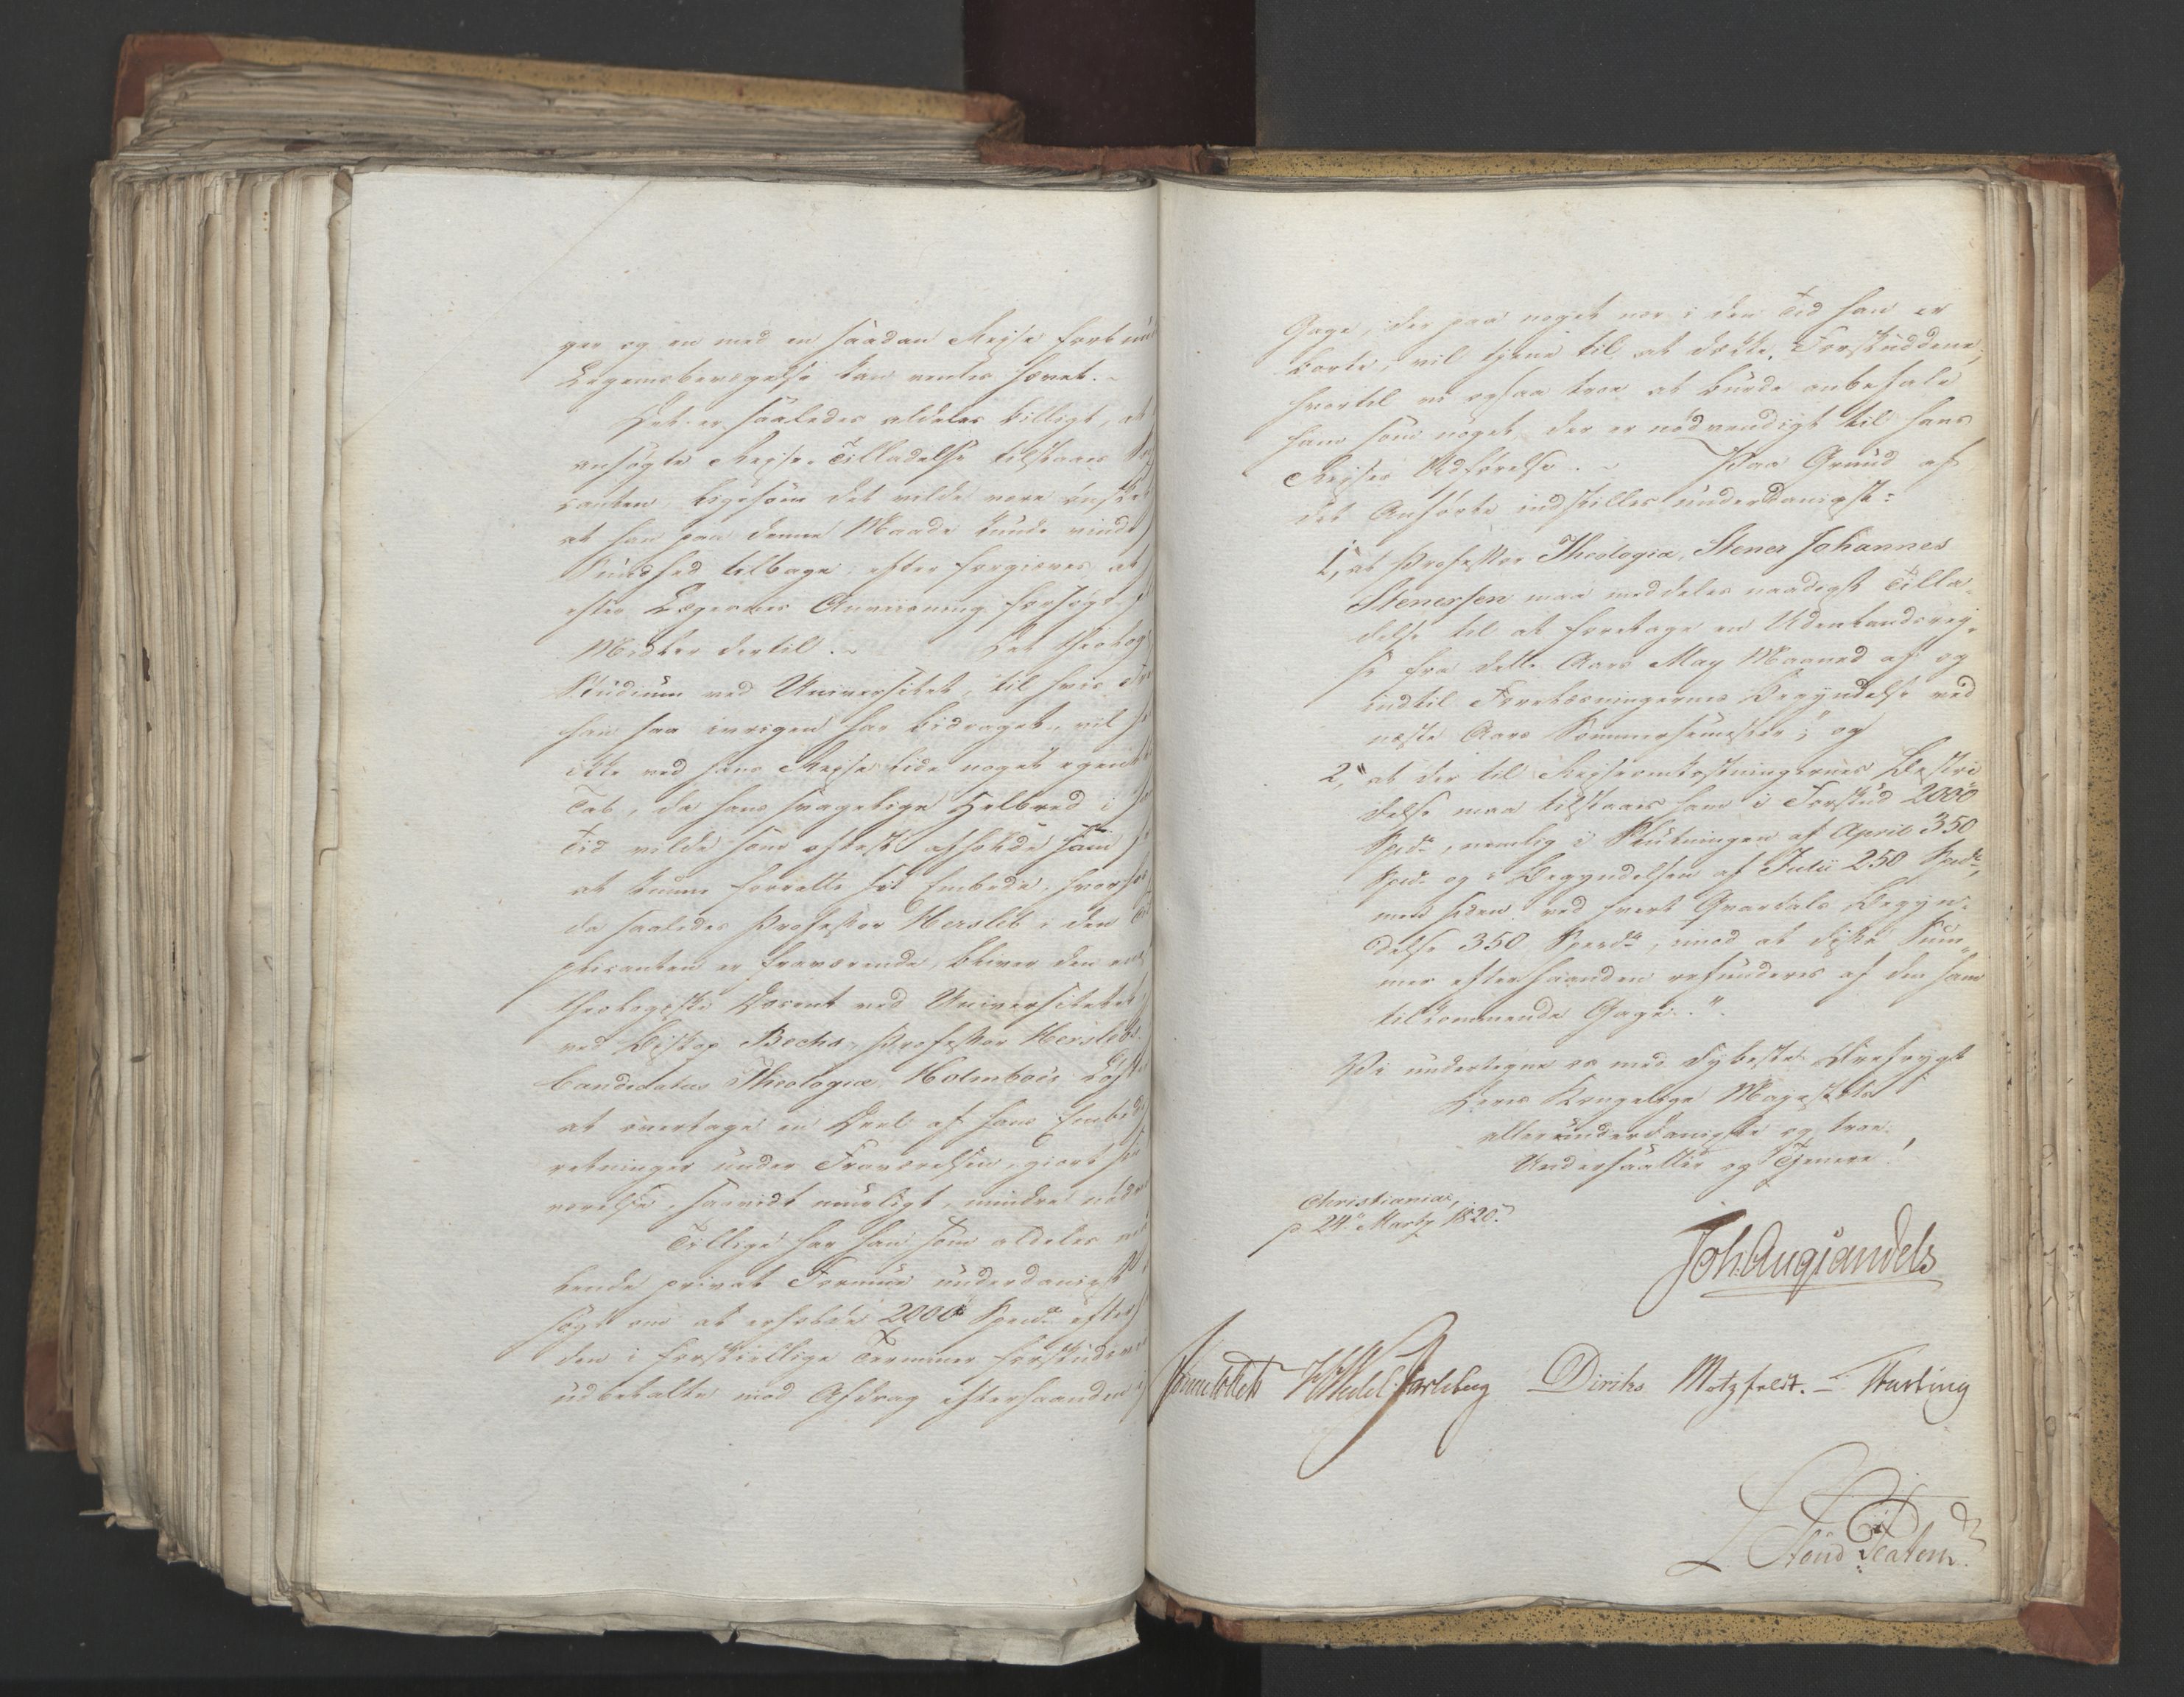 ger og en med en saadan Rejse forbun
Legemsbevægelse kan ventes hævet.
Det er saaledes aldeles billigt, at
ansøgte Rejse-Tilladelse tilstaaes
canten, ligesom det vilde være ønske
at han paa denne Maade kunde vinde
Sundhed tilbage, efter forgieves at
efter Lægernes Anviisning forsøgt
Midler dertil. Det theolog
Studium ved Universitet, til hvis
han saa ivrigen har bidraget, vil
ikke ved hans Rejse lide noget egent
Tab, da hans svagelige Helbred i
Tid vilde som oftest afholde ham
at kunne forrette sit Embede, hvor
da saaledes Professor Hersleb i den Tid
plicanten er fraværende, bliver den
theologiske Docent ved Universitetet
ved Biskop Bechs, Professor Herslebs
Candidatus Theologiæ Holmboes Løfte
at overtage en Deel af hans Embeds
retninger under Fraværelsen, giort
værelse, saavidt mueligt, mindre nødv
Tillige har han som aldeles
bende privat Formue underdanigst
søgt om at erholde 2000 Spd. efter
den i forskiellige Terminer forskuds
udbetalte mod Afdrag efterhaanden
Gage, der paa noget nær i den Tid han er
borte, vil tjene til at dække Forskuddene,
hvortil vi ogsaa troe at burde anbefale
ham som noget, der er nödvendigt til hans
Rejses Udførelse. Paa Grund af
det Anførte indstilles underdanigst:
1, at Professor Theologiæ, Stener Johannes
Stenersen maa meddeles naadigst Tilla-
delse til at foretage en Udenlandsrej-
se fra dette Aars May Maaned af og
indtil Forelæsningernes Begyndelse ved
næste Aars Sommersemester; og
2, at der til Rejseomkostningernes Bestri
delse maa tilstaaes ham i Forskud 2000
Spd., nemlig i Slutningen af April 350
Spd. og i Begyndelsen af Julii 250 Spd.,
men siden ved hvert Qvartals Begyn-
delse 350 Spd., imod at disse Sum-
mer efterhaanden refunderes af den ham
tilkommende Gage.
Vi undertegne os med dybeste Ærefrygt
Deres Kongelige Majestæts
allerunderdanigste og troe
Undersaatter og Tjenere!
Christiania,
d 24 Martz 1820.
Joh. Aug Sandels
Sommerhielm HWedel-Jarlsberg Diriks Motzfeldt. – Fasting
L Stoud Platou.